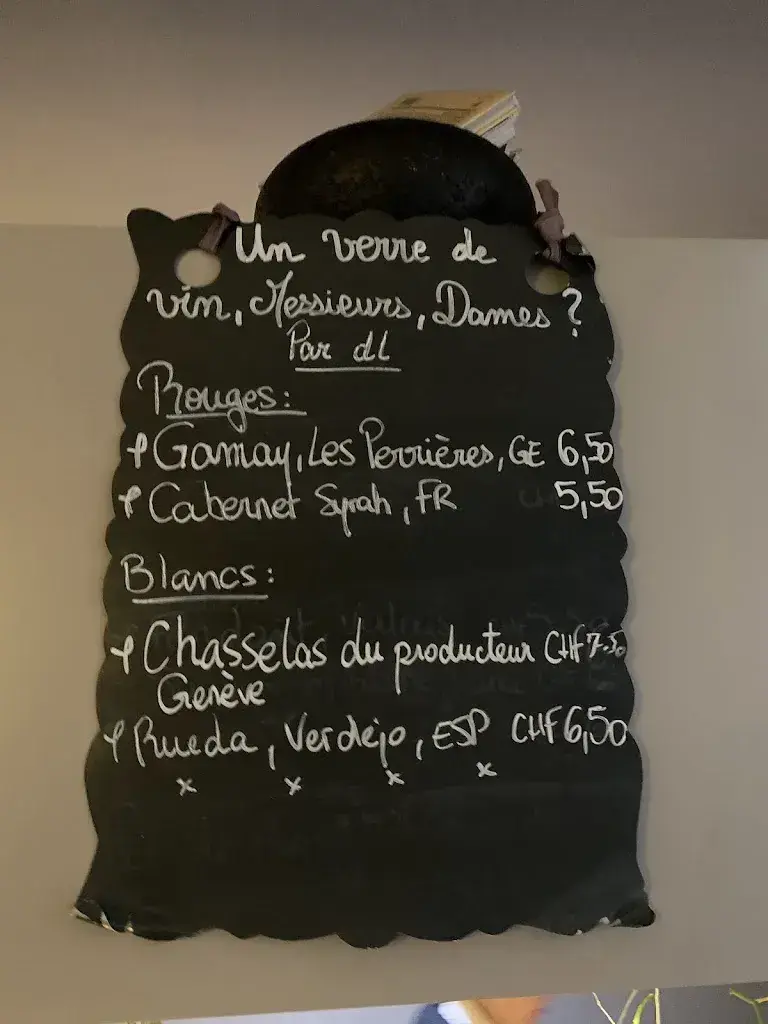 Un verre de
vin, Messieurs, Dames ?
Par dl
Rouges :
Gamay, Les Perrières, GE 6,50
Cabernet Syrah, FR 5,50
Blancs :
Chasselas du producteur CHF 7.50
Genève
Rueda, Verdejo, ESP CHF 6,50
x x x x